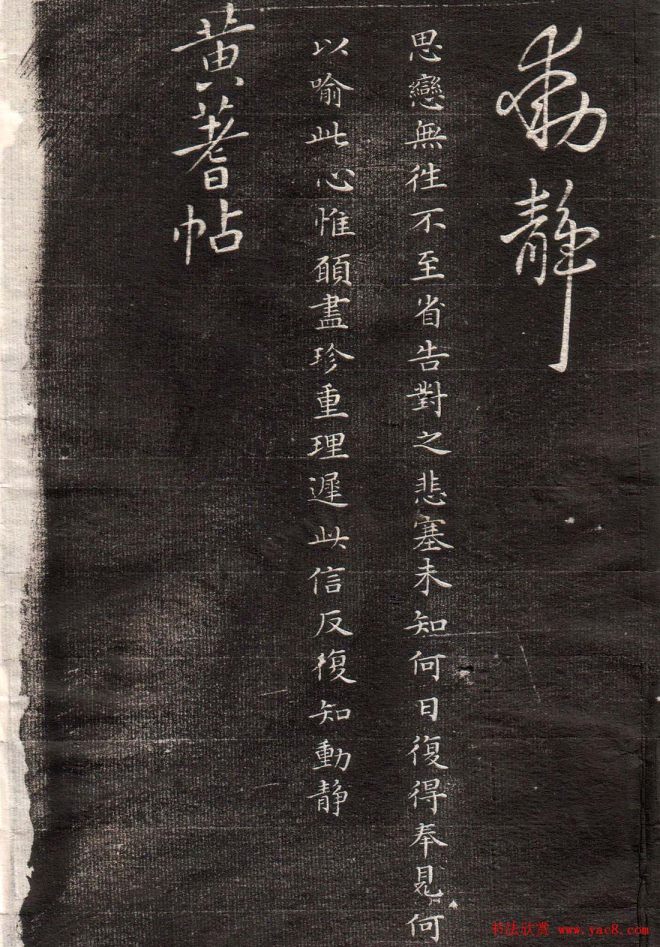 動静
思戀無徃不至省告對之悲塞未知何日復得奉見何
以喻此心惟願盡珍重理遲此信反復知動静
黄耆帖
书法欣赏
www.yac8.com